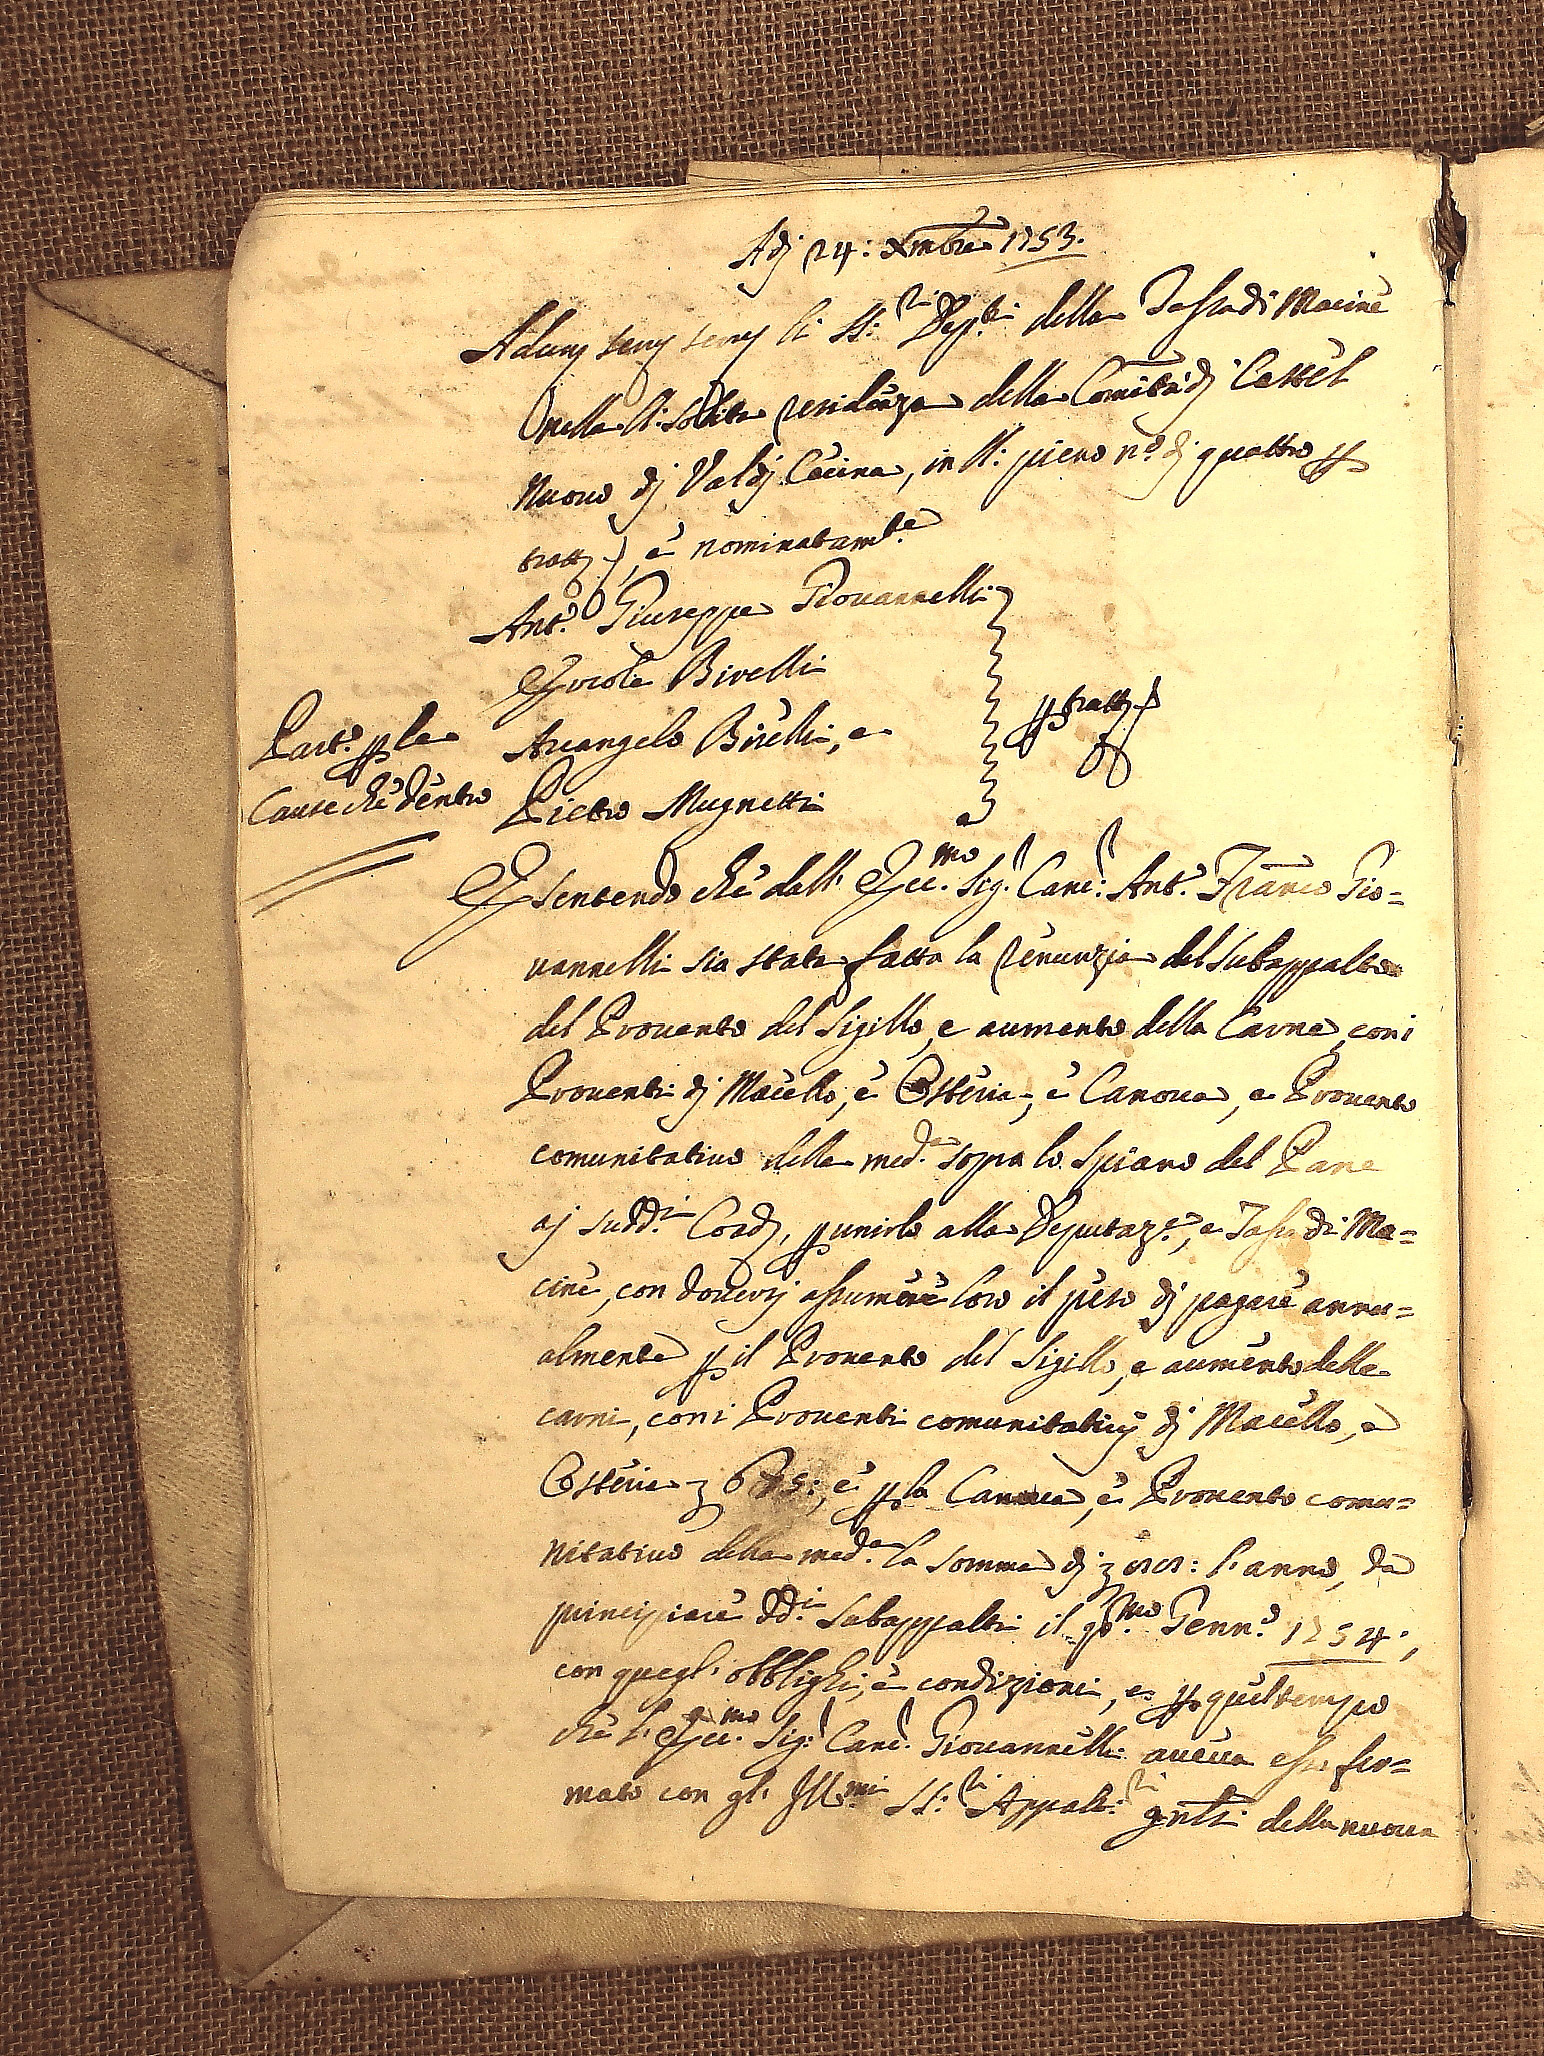 Adj 24: Xmbre 1753.
Adunj servj servj li SS:ri Dep:ti della Tassa di Macine
nella S: solita residenza della Comità dj Castel
Nuovo dj Val dj Cecina, in S: pieno n:o dj quattro p
tratt, è nominatamte
Ant:o Giuseppe Giovannelli
Ercole Birelli
Arcangelo Birelli, e
Pietro Mugnetti
p tratt
Part:o p le
Cause chè dentro
Essendo chè dall' Ecc:mo Sig:r Canc:re Ant:o Franco Gio=
vannelli sia stata fatta la renunzia del Subappalto
del Provento del Sigillo, e aumento della Carne, coni
Proventi dj Macello, è Osteria, è Canova, e Provento
comunitativo della med:a sopra lo Spiano del Pane
aj sudd:i Cord, p unirlo alla Deputaz:e, e Tassa di Ma=
cine, con doversj assumere loro il peso dj pagare annu=
almente p il Provento del Sigillo, e aumento delle
carni, coni Proventi comunitativj dj Macello, e
Osteria è p la Canova, è Provento comu=
nitativo della med:a la somma dj l'anno, da
principiare dd:i Subappalti il p:mo Genn:o 1754:,
con quegl' obblighi, è condizioni, e p quel tempo
chè l' Ecc:mo Sig:r Canc:re Giovannelli aveva esso fer=
mato con gl' Ill:mi SS:ri Appalt:ri gnlli della nuova